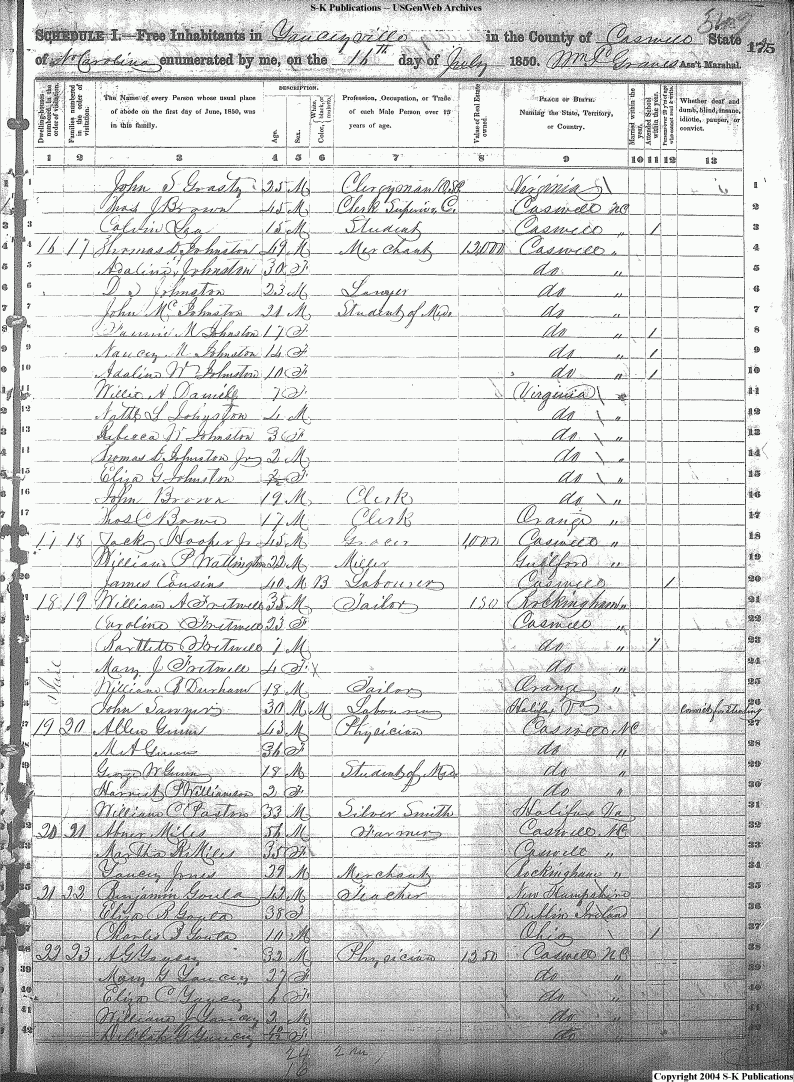 S-K Publications -- USGenWeb Archives
SCHEDULE I.—Free Inhabitants in Yanceyville in the County of Caswell State
of N. Carolina enumerated by me, on the 16th day of July 1850. Wm P Graves Ass't Marshal.
175
Dwelling-houses numbered in the order of visitation. Families numbered in the order of visitation. The Name of every Person whose usual place of abode on the first day of June, 1850, was in this family. DESCRIPTION. Age. Sex. Color, White, black, or mulatto. Profession, Occupation, or Trade of each Male Person over 15 years of age. Value of Real Estate owned. PLACE OF BIRTH. Naming the State, Territory, or Country. Married within the year. Attended School within the year. Whether deaf and dumb, blind, insane, idiotic, pauper, or convict.
1 2 3 4 5 6 7 8 9 10 11 12 13
1 John S Grasty 25 M Clergyman Virginia 1
2 Thos J Brown 45 M Clerk Superior C. Caswell NC 2
3 Calvin Lea 15 M Student Caswell " 1 3
4 16 17 Thomas D Johnston 49 M Merchant 12,000 Caswell " 4
5 Adaline Johnston 30 F do " 5
6 D S Johnston 23 M Lawyer do " 6
7 John Mc Johnston 21 M Student of Med. do " 7
8 M Johnston 17 F do " 1 8
9 Nancy Johnston 14 F do " 1 9
10 Adaline W Johnston 10 F do " 1 10
11 Willie A Daniell 7 F Virginia " 11
12 L Johnston 4 M do " 12
13 Rebecca W Johnston 3 F do " 13
14 Thomas D Johnston Jr 2 M do " 14
15 Eliza G Johnston F do " 15
16 John Brown 19 M Clerk do " 16
17 Thos C Bowe 17 M Clerk Orange " 17
18 17 18 Zach Hooper Jr 45 M Grocer 1,000 Caswell " 18
19 William P Watlington 22 M Miller Guilford " 19
20 James Cousins 40 M B Labourer Caswell " 1 20
21 18 19 William A Fretwell 35 M Tailor 150 Rockingham " 21
22 Caroline Fretwell 23 F Caswell " 22
23 Bartlett Fretwell 7 M do " 1 23
24 Mary J Fretwell 4 F do " 24
25 William B Durham 18 M Tailor Orange " 25
26 John Sawyer 30 M M Labourer Halifax Va Convict for Stealing 26
27 19 20 Allen Gunn 43 M Physician Caswell NC 27
28 M A Gunn 36 F do " 28
29 George W Gunn 18 M Student of Med. do " 29
30 Harriet P Williamson 2 F do " 30
31 William C Paxton 33 M Silver Smith Halifax Va 31
32 20 21 Abner Miles 56 M Farmer Caswell NC 32
33 Martha K Miles 35 F Caswell " 33
34 Yancey Jones 29 M Merchant Rockingham " 34
35 21 22 Benjamin Gould 42 M Teacher New Hampshire 35
36 Eliza R Gould 38 F Dublin Ireland 36
37 Charles Gould 10 M Ohio 1 37
38 22 23 A G Yancey 32 M Physician 1250 Caswell NC 38
39 Mary G Yancey 27 F do " 39
40 Eliza C Yancey 6 F do " 40
41 William J Yancey 2 M do " 41
42 Delilah G Yancey F do " 42
24
18
Copyright 2004 S-K Publications